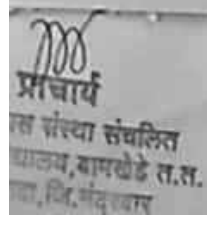 प्राचार्य
संस्था संचलित
बामखेडे त.त.
जि.नंदुरबार